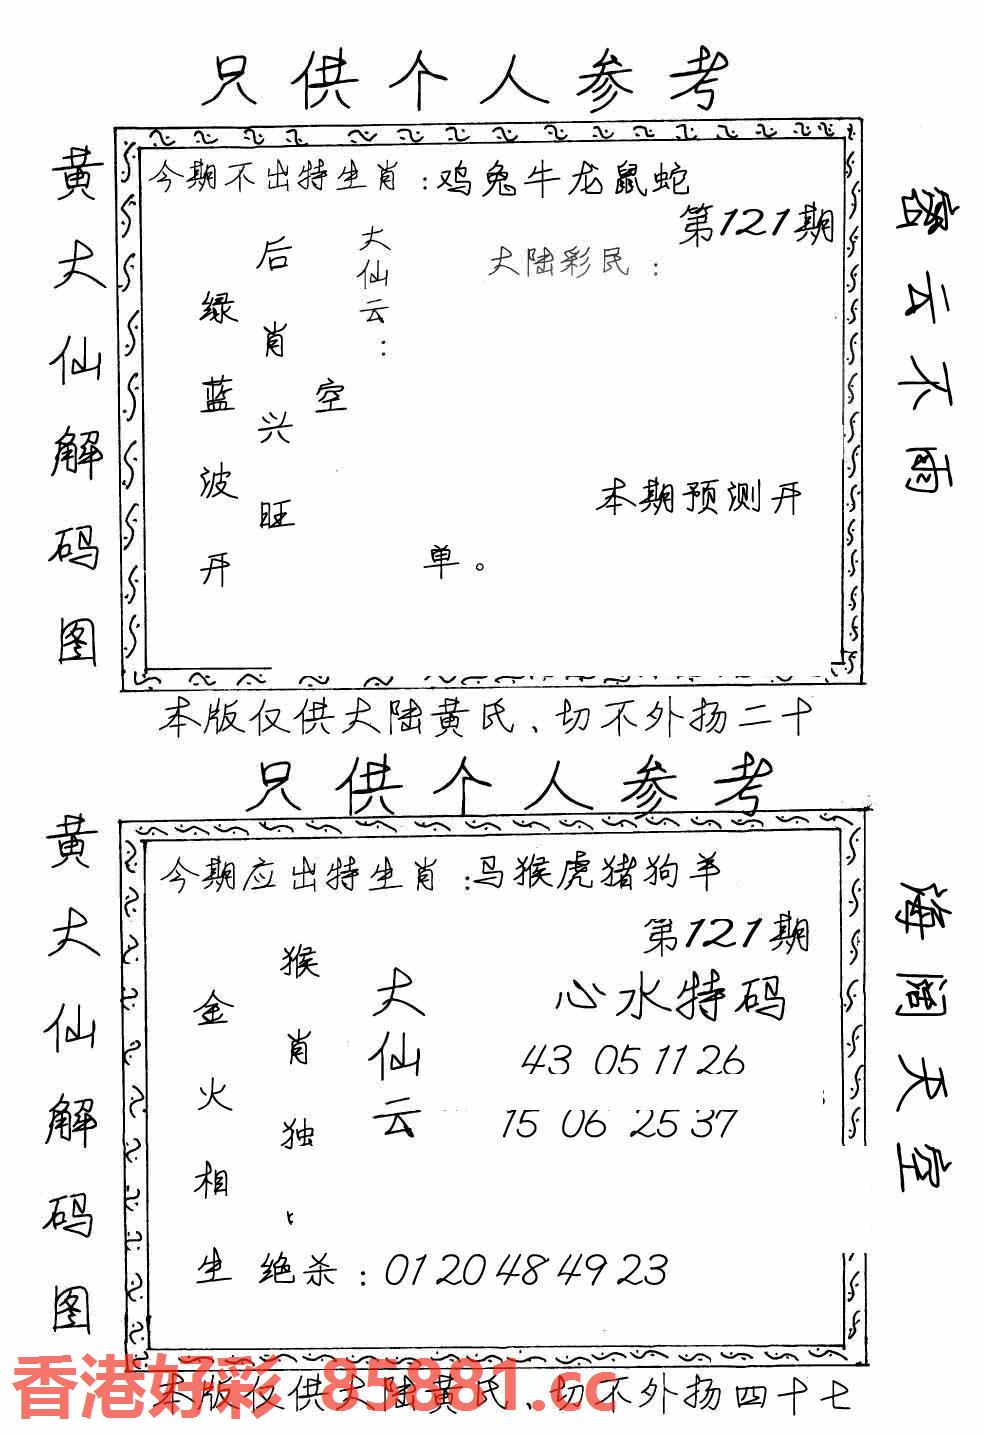 只供个人参考
黄大仙解码图
今期不出特生肖：鸡兔牛龙鼠蛇
第121期
大陆彩民：
大仙云：
后肖兴旺
绿蓝波开
空
本期预测开
单。
密云不雨
本版仅供大陆黄氏、切不外扬二十
只供个人参考
黄大仙解码图
今期应出特生肖：马猴虎猪狗羊
第121期
心水特码
43 05 11 26
15 06 25 37
大仙云
猴肖独
金火相生
绝杀：01 20 48 49 23
海阔天空
本版仅供大陆黄氏、切不外扬四十七
香港好彩 85881.cc